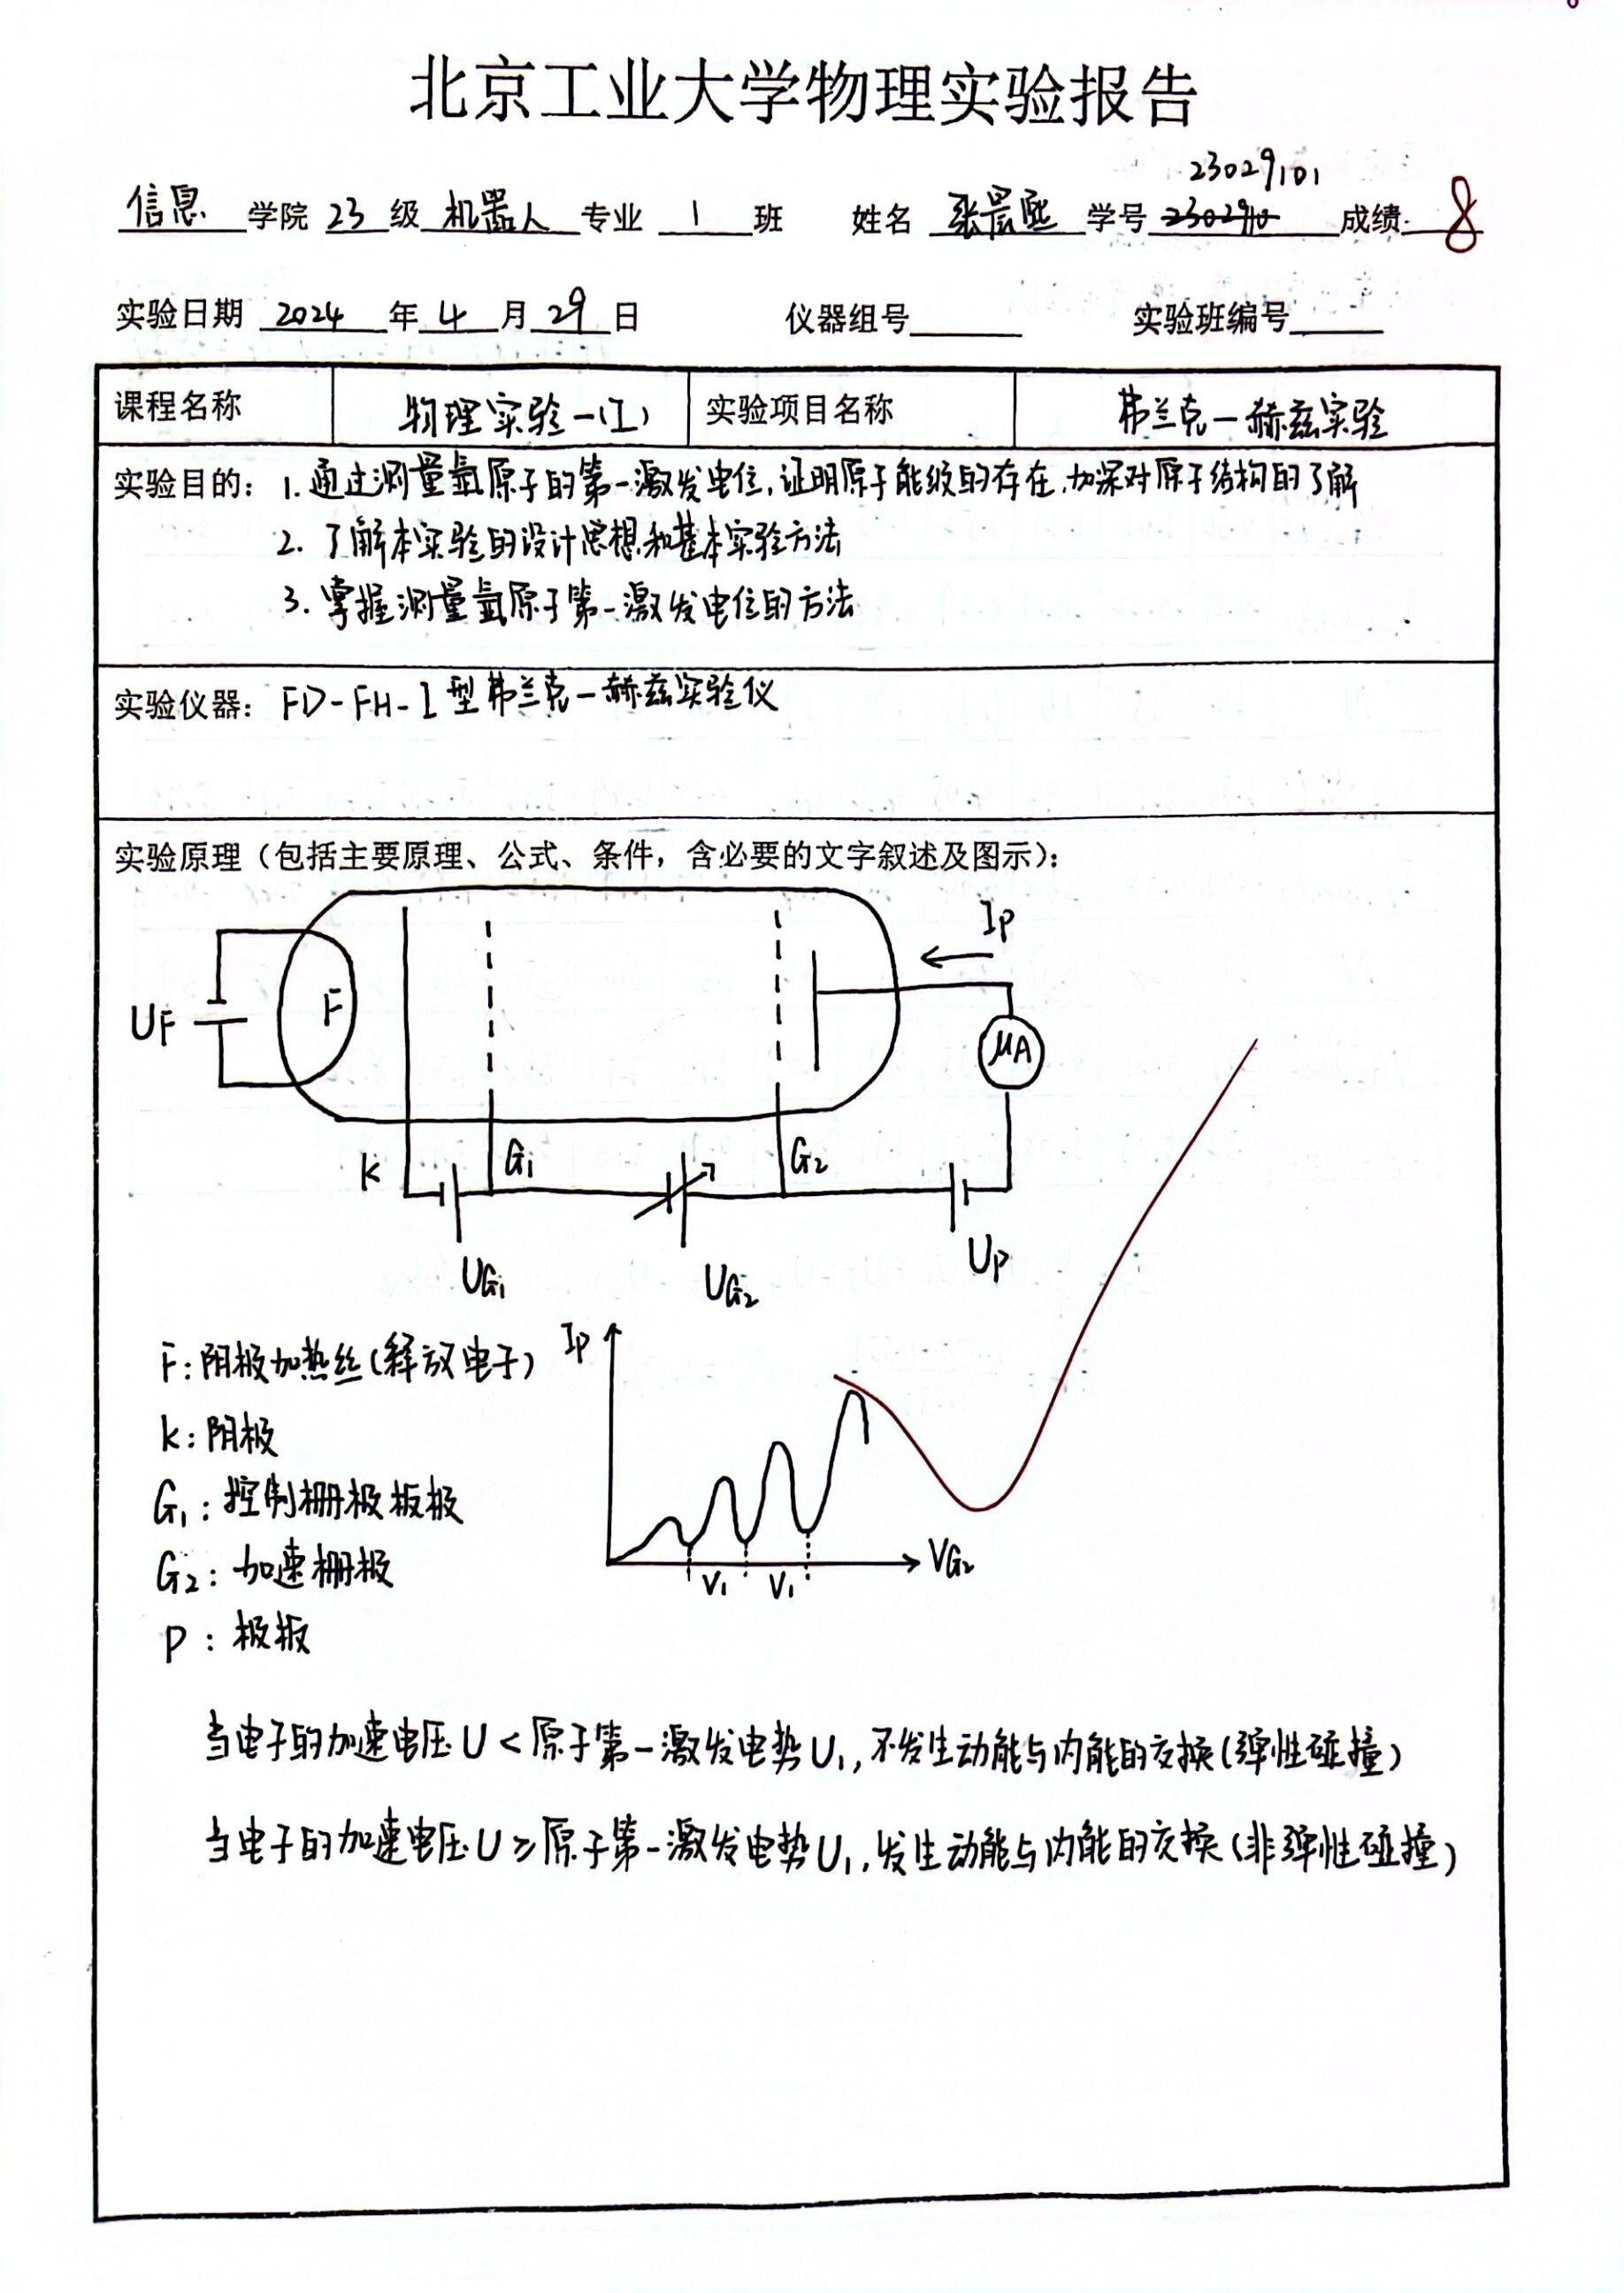 北京工业大学物理实验报告
23029101
信息 学院 23 级 机器人 专业 1 班 姓名 张晨熙 学号 成绩 8
实验日期 2024 年 4 月 29 日 仪器组号 实验班编号
课程名称 物理实验-(I) 实验项目名称 弗兰克-赫兹实验
实验目的: 1.通过测量氩原子的第一激发电位,证明原子能级的存在,加深对原子结构的了解
2. 了解本实验的设计思想和基本实验方法
3. 掌握测量氩原子第一激发电位的方法
实验仪器: FD-FH-I型弗兰克-赫兹实验仪
实验原理(包括主要原理、公式、条件,含必要的文字叙述及图示):
IP
UF F μA
K G1 G2
UG1 UG2 UP
F:阴极加热丝(释放电子) IP
K:阴极
G1:控制栅极板极
G2:加速栅极 VG2
V1 V1
P:极板
当电子的加速电压U<原子第一激发电势U1,不发生动能与内能的交换(弹性碰撞)
当电子的加速电压U≥原子第一激发电势U1,发生动能与内能的交换(非弹性碰撞)